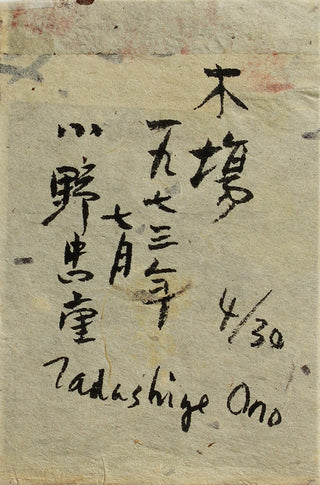 木場
一九七三年
七月
小野忠重
4/30
Tadashige Ono